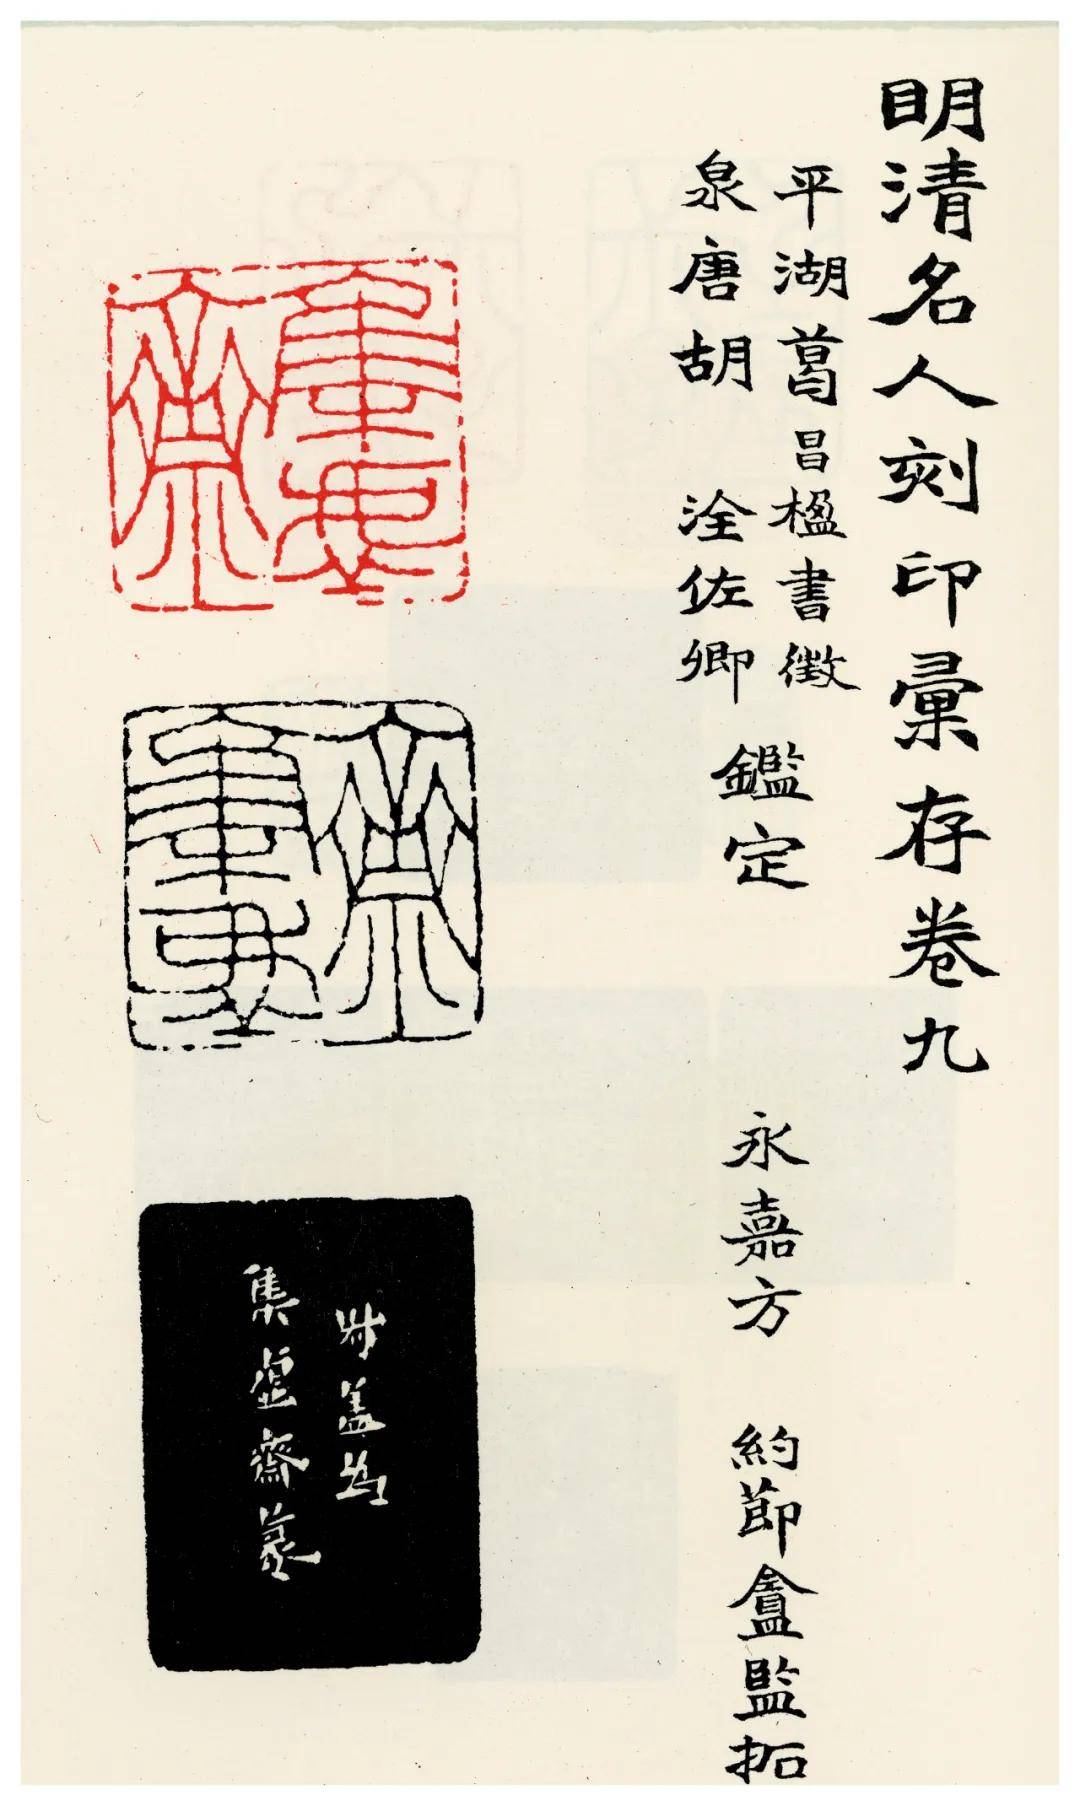 明清名人刻印彙存卷九
平湖葛昌楹書徵
泉唐胡 洤佐卿
鑑定
永嘉方 約節盦監拓
集虛齋篆